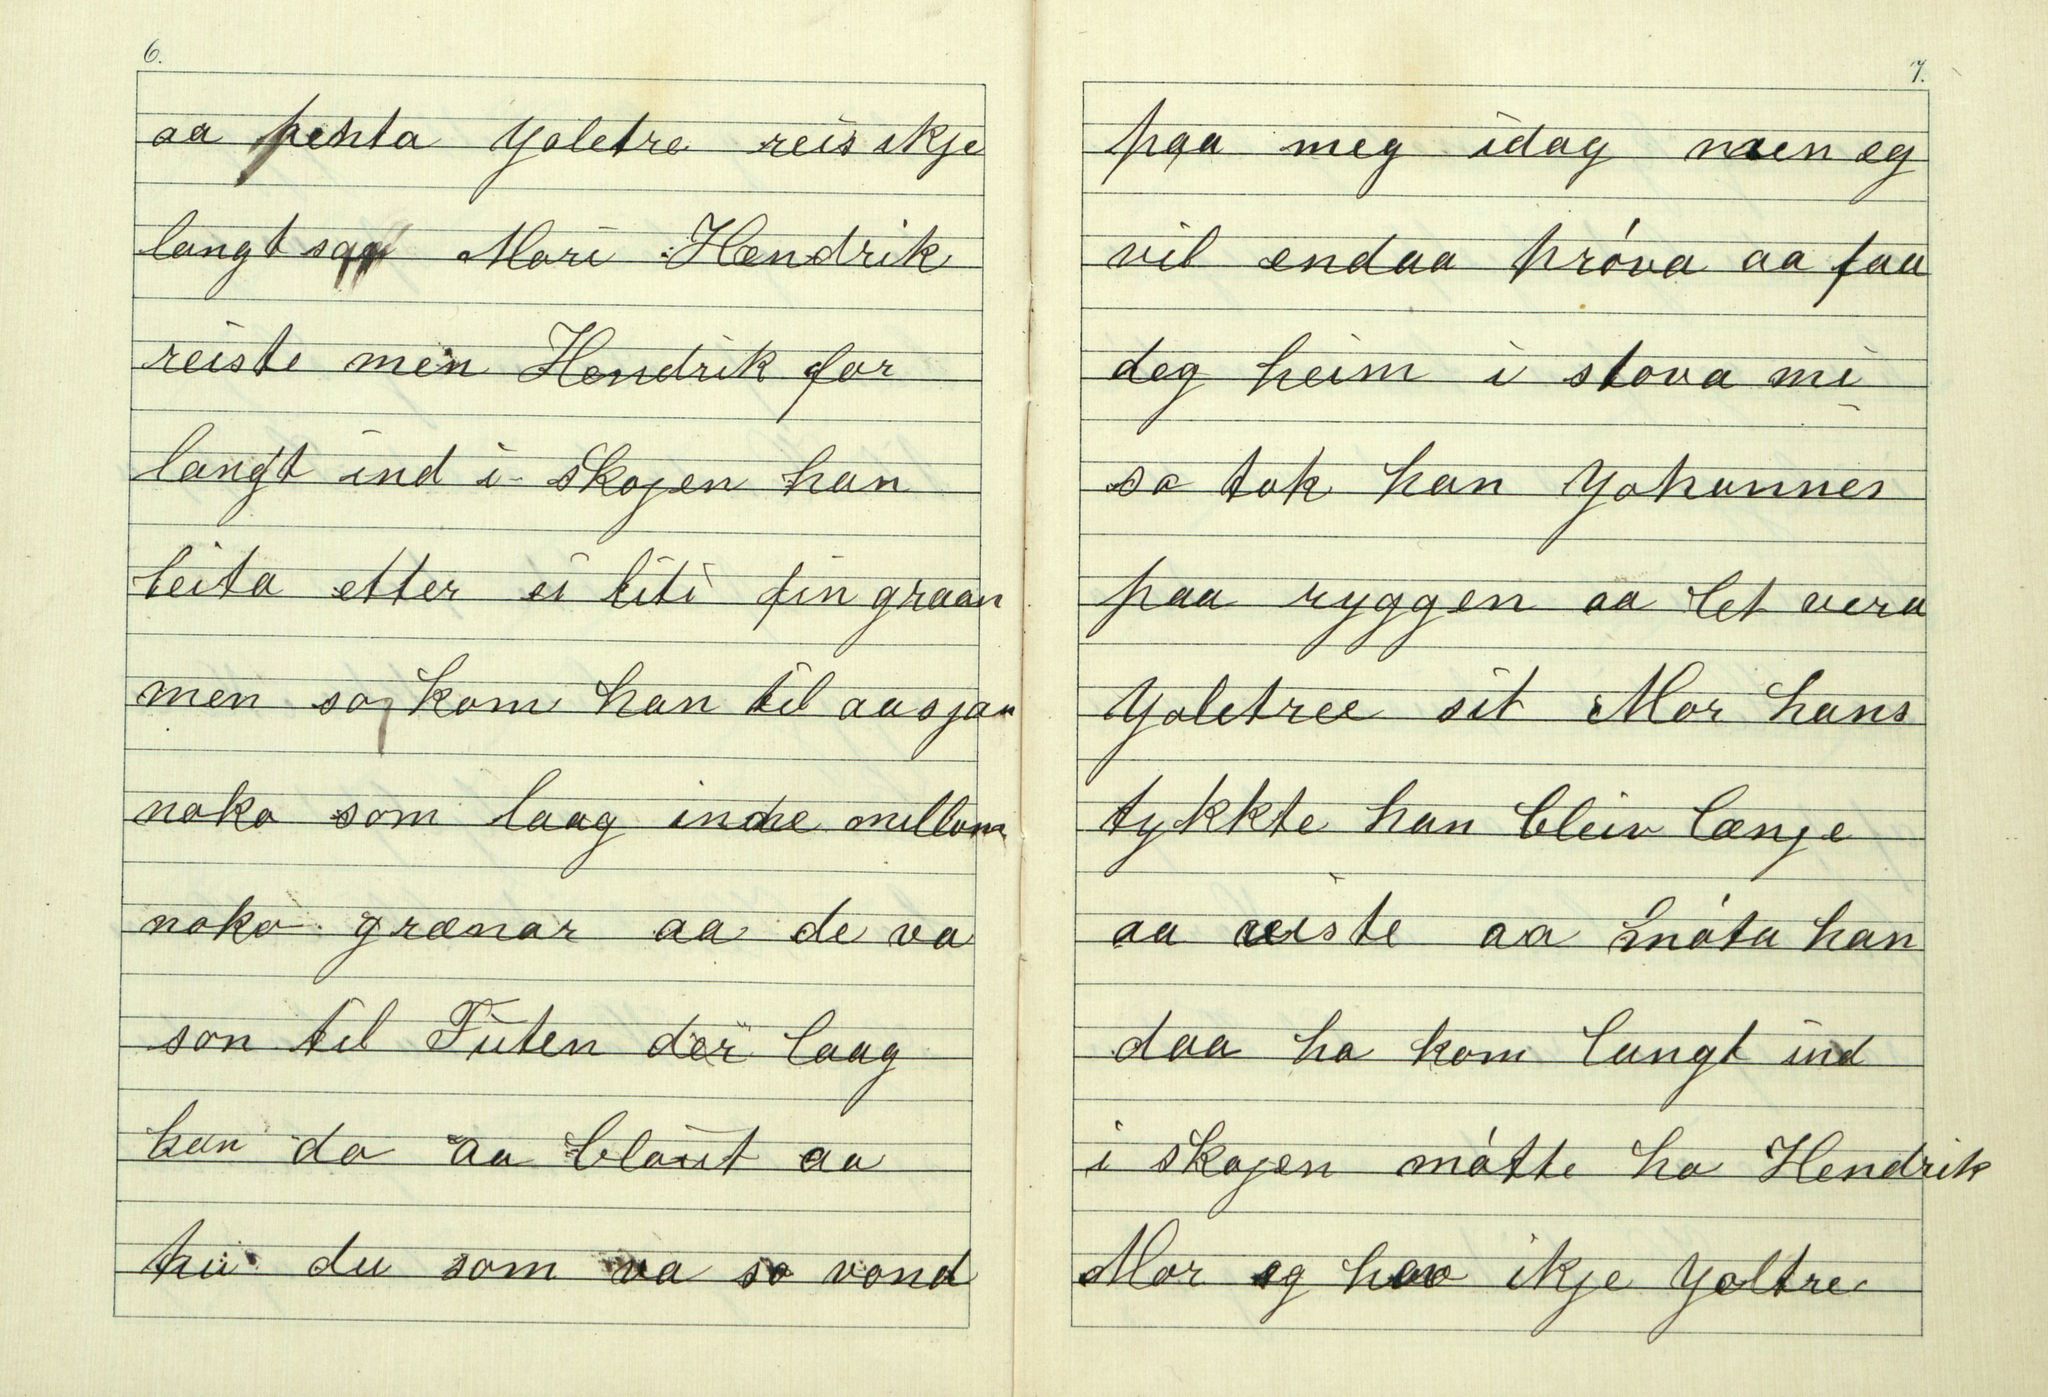 6.
aa penta Yoletre reis ikje
langt saa Mori Hendrik
reiste men Hendrik for
langt ind i skogen han
leita etter ei liti fin graan
men so kom han til aasjaa
noko som laag inne millom
noko grænar aa de va
son til Futen der laag
han da aa blaut aa
hu du som va so vond
7.
paa meg idag men eg
vil endaa próva aa faa
deg heim i stova mi
so tok han Yohannes
paa ryggen aa let vera
Yoletree sit Mor hans
tykkte han bleiv længe
aa reiste aa móta han
daa ho kom langt ind
i skogen mótte ho Hendrik
Mor eg hav ikje Yoltre